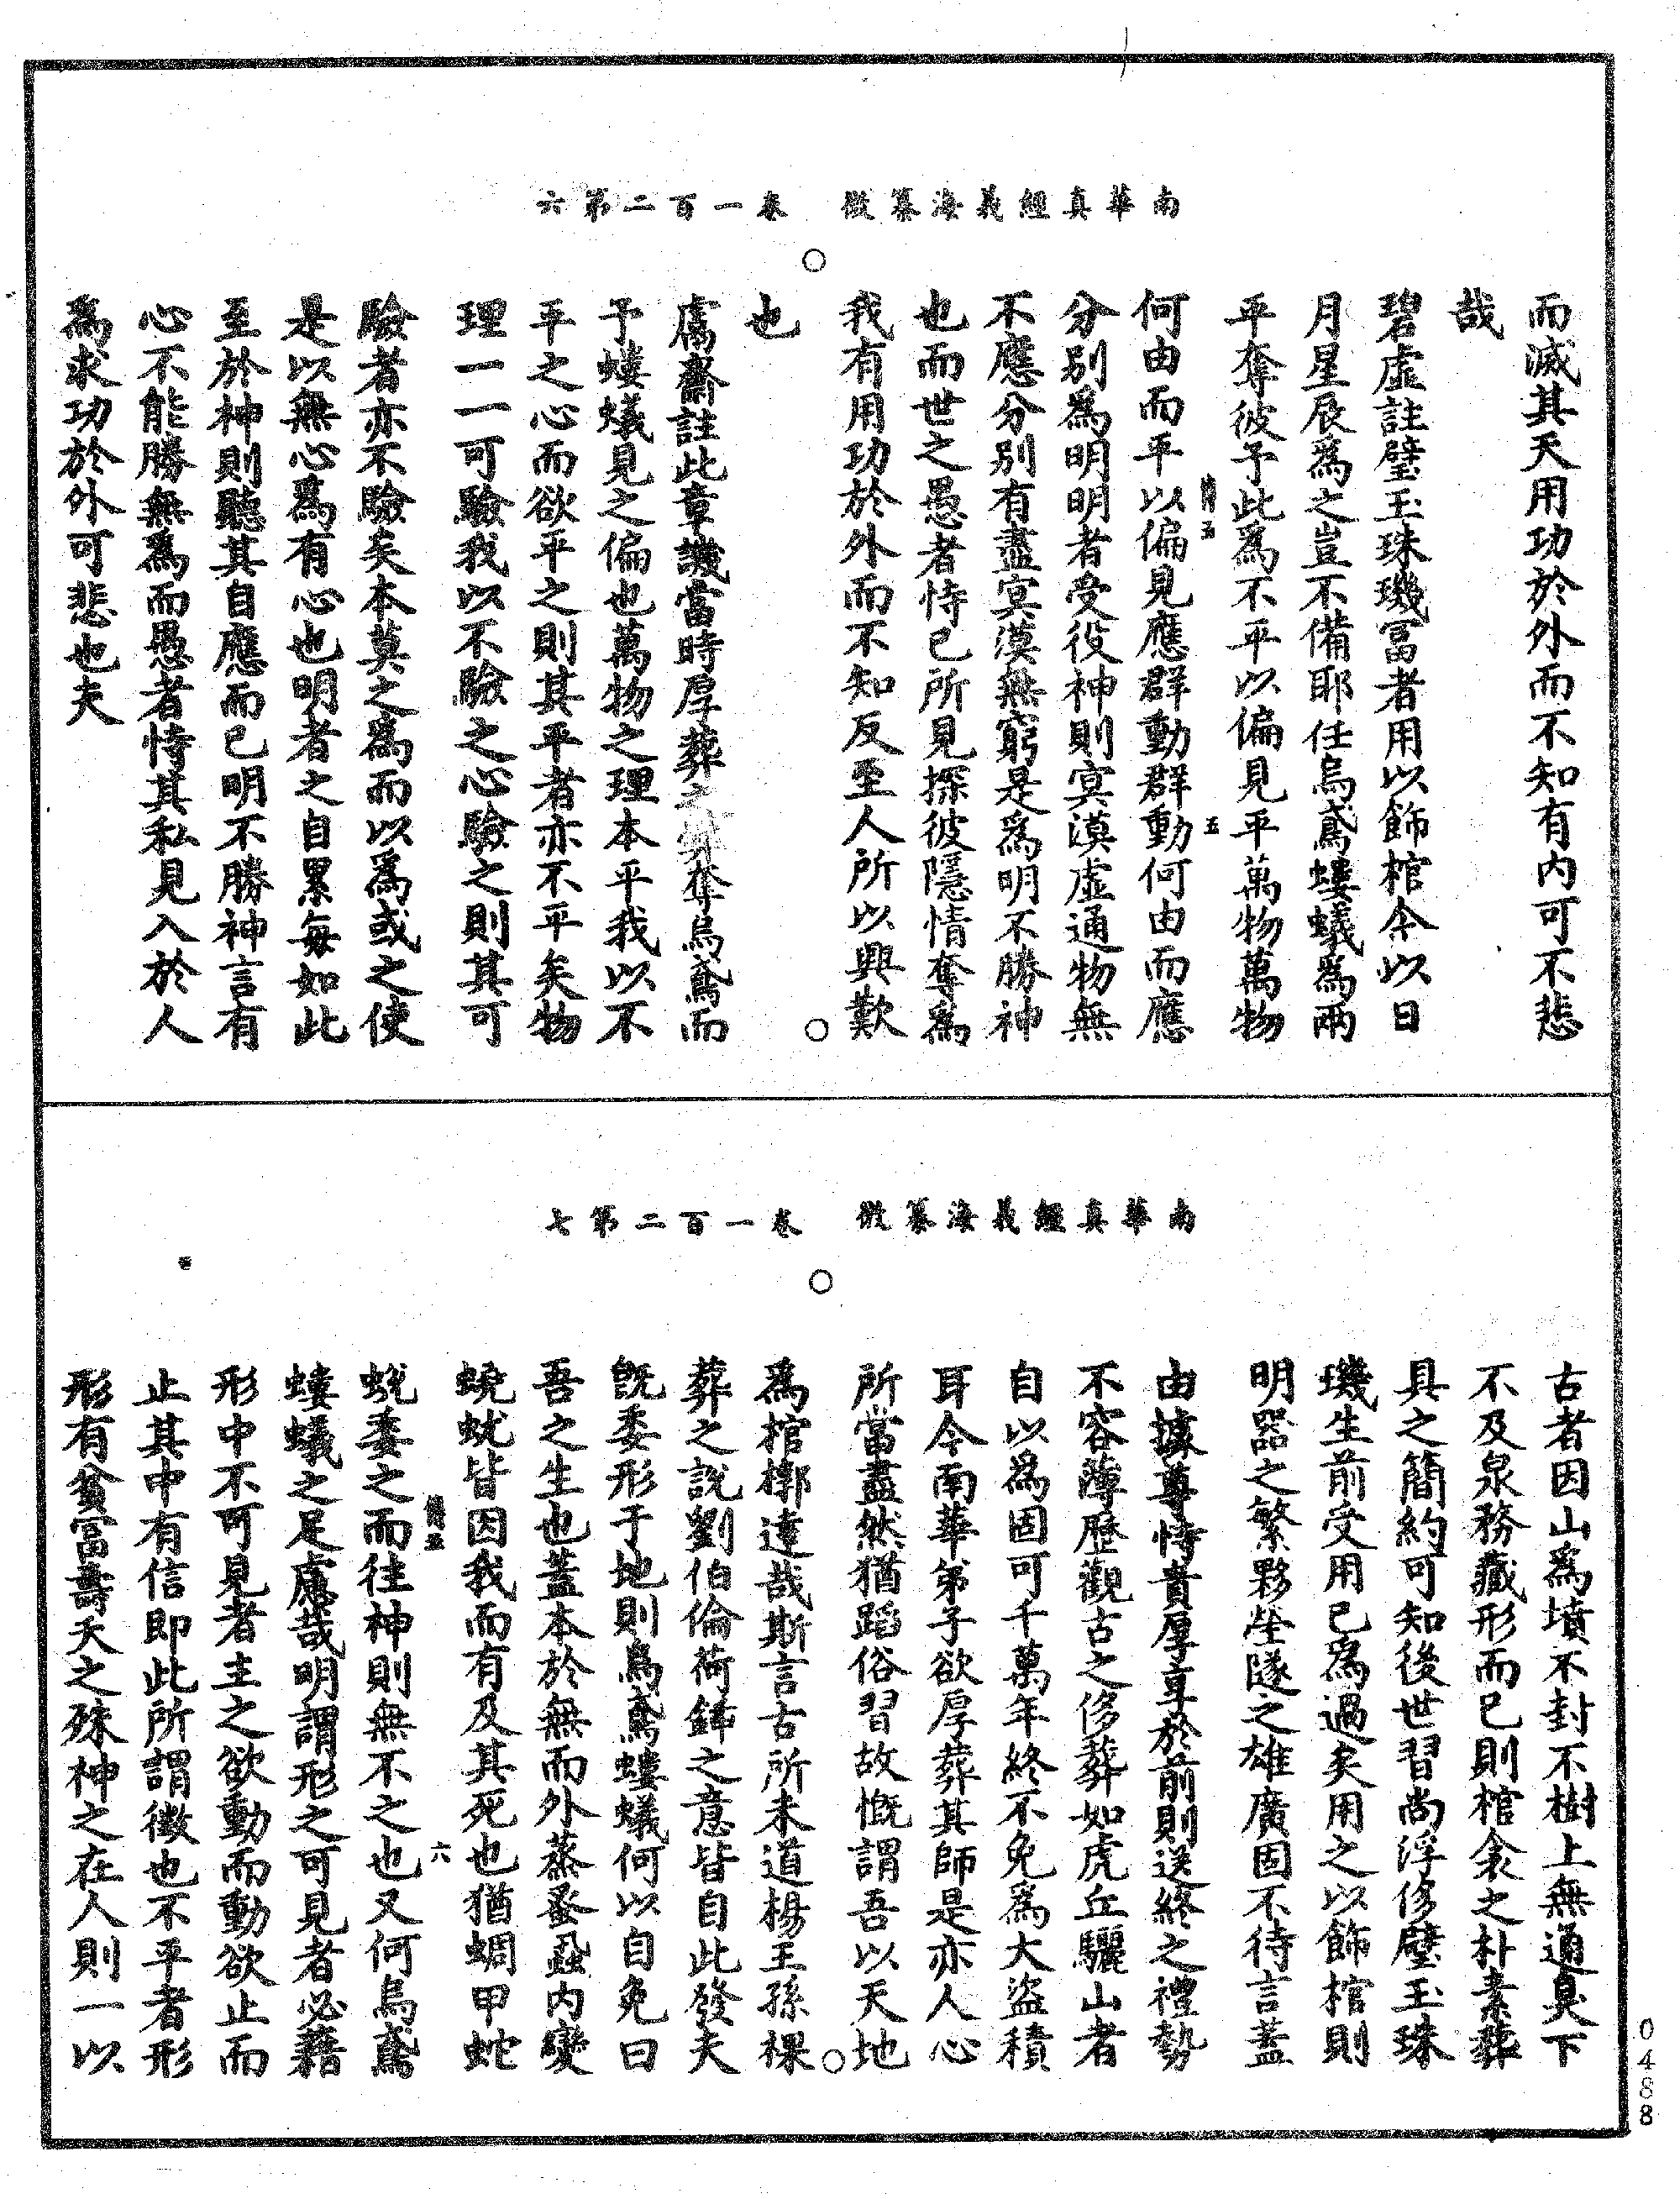 南華真經義海纂微　卷一百二第六
而滅其天用功於外而不知有内可不悲
哉
碧虛註璧玉珠璣冨者用以飾棺今以日
月星辰爲之豈不備耶任烏鳶螻蟻爲兩
平奪彼予此爲不平以偏見平萬物萬物
何由而平以偏見應群動群動何由而應
五
分别爲明明者受役神則㝠漠虛通物無
不應分别有盡㝠漠無窮是爲明不勝神
也而世之愚者恃已所見探彼隱情奪爲
我有用功於外而不知反至人所以興歎
也
鬳齋註此章譏當時厚葬之弊奪烏鳶而
予螻蟻見之偏也萬物之理本平我以不
平之心而欲平之則其平者亦不平矣物
理一一可驗我以不驗之心驗之則其可
驗者亦不驗矣本莫之爲而以爲或之使
是以無心爲有心也明者之自累每如此
至於神則聽其自應而已明不勝神言有
心不能勝無爲而愚者恃其私見入於人
爲求功於外可悲也夫
南華真經義海纂微　卷一百二第七
古者因山爲墳不封不樹上無通臭下
不及泉務藏形而已則棺衾之朴素葬
具之簡約可知後世習尚浮侈璧玉珠
璣生前受用已爲過矣用之以飾棺則
明器之繁夥塋隧之雄廣固不待言蓋
由據尊恃貴厚享於前則送終之禮勢
不容薄歷觀古之侈葬如虎丘驪山者
自以爲固可千萬年終不免爲大盜積
耳今南華弟子欲厚葬其師是亦人心
所當盡然猶蹈俗習故慨謂吾以天地
爲棺槨達哉斯言古所未道楊王孫裸
葬之說劉伯倫荷鍤之意皆自此發夫
旣委形于地則烏鳶螻蟻何以自免曰
吾之生也蓋本於無而外蒸蚤蝨内變
蟯蚘皆因我而有及其死也猶蜩甲蛇
蛻委之而往神則無不之也又何烏鳶
六
螻蟻之足慮哉明謂形之可見者必藉
形中不可見者主之欲動而動欲止而
止其中有信即此所謂徵也不平者形
形有貧冨壽夭之殊神之在人則一以
0488